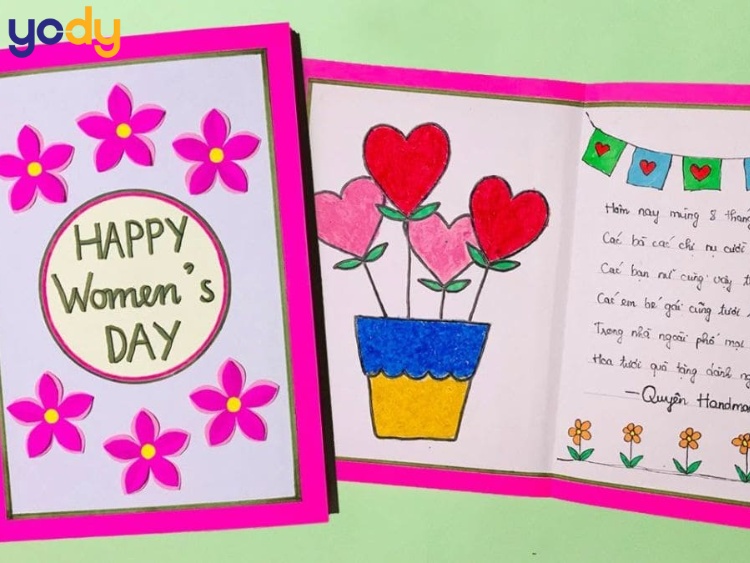 yody
HAPPY
Women's
DAY
Hôm nay mùng 8 tháng
Các bà các chị nụ cười
Các bạn nữ cũng vậy
Các em bé gái cũng tươi
Trong nhà ngoài phố mọi
Hoa tươi quà tặng dành
—Quyên Handma